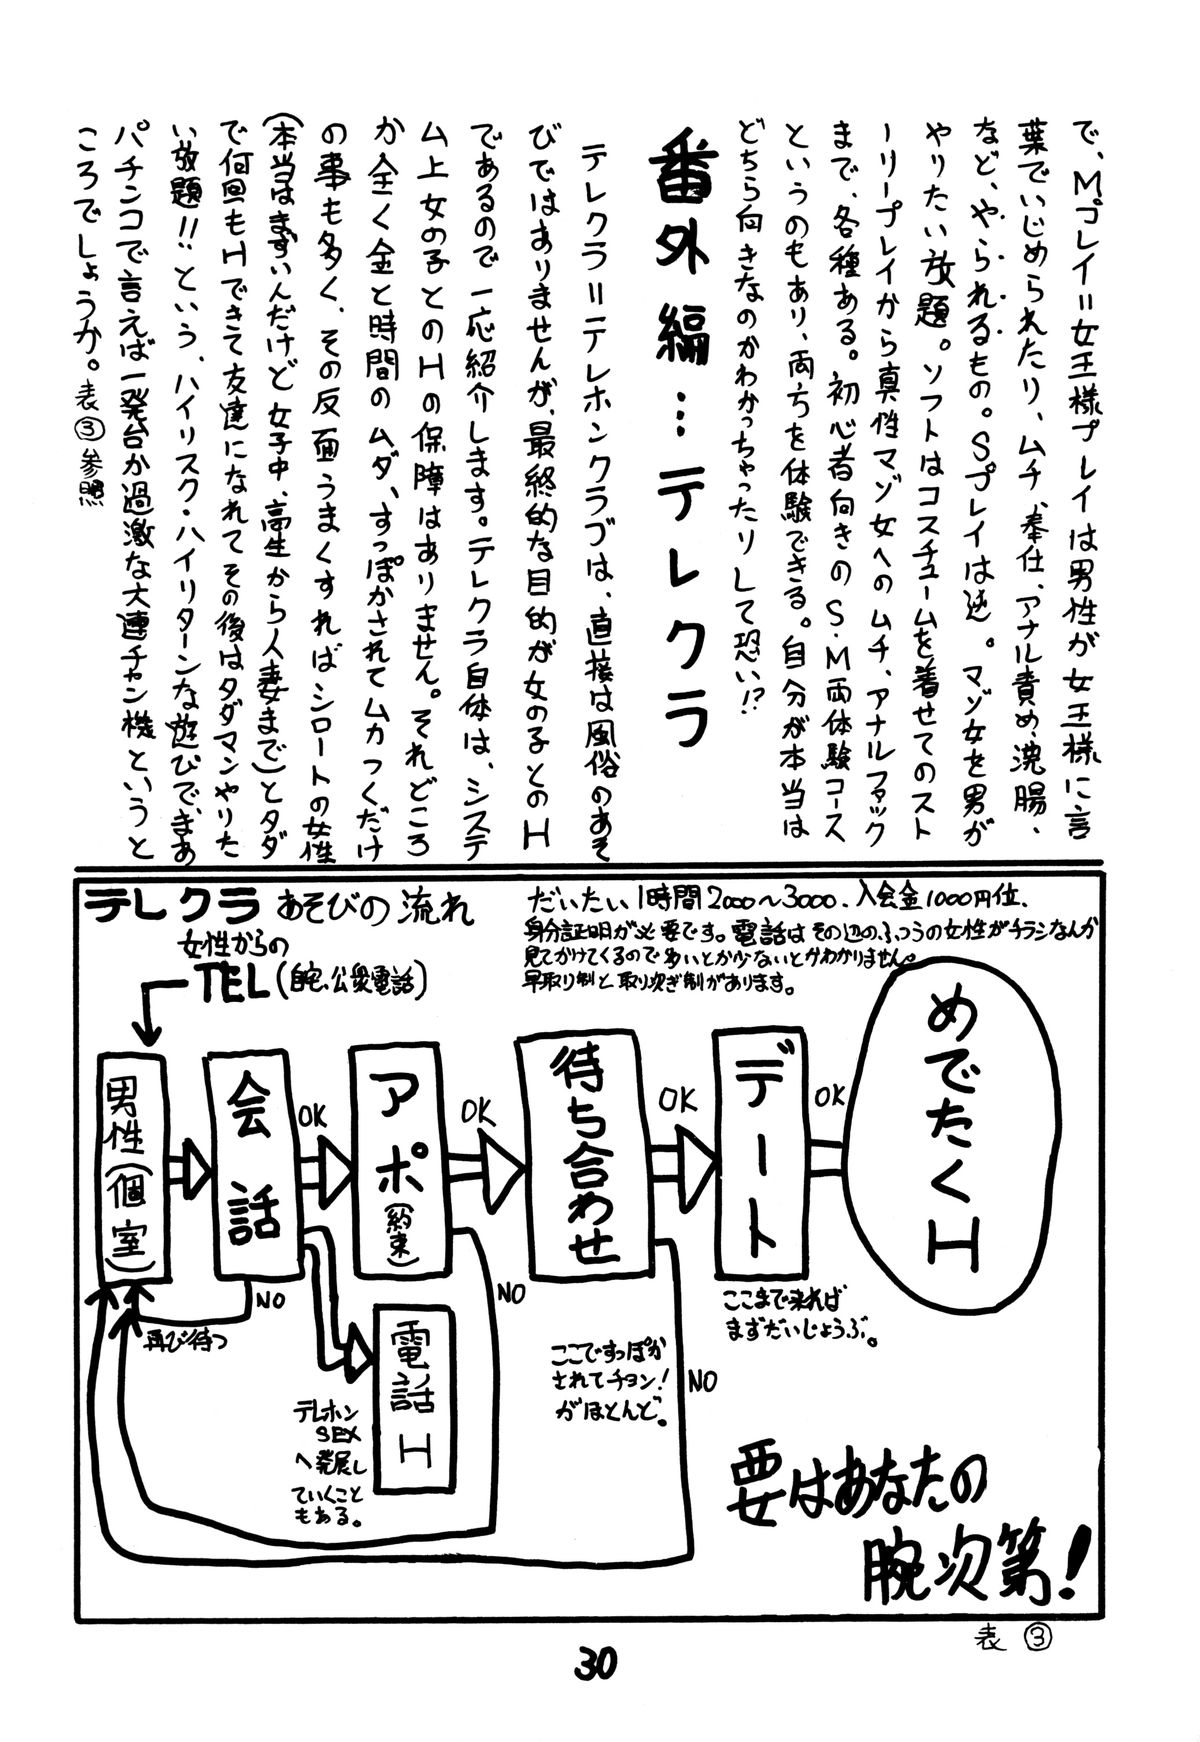 で、Mプレイ=女王様プレイは男性が女王様に言
葉でいじめられたり、ムチ、奉仕、アナル責め、浣腸、
など、やられるもの。Sプレイは逆。マゾ女を男が
やりたい放題。ソフトはコスチュームを着せてのスト
ーリープレイから真性マゾ女へのムチ、アナルファック
まで、各種ある。初心者向きのS・M両体験コース
というのもあり、両方を体験できる。自分が本当は
どちら向きなのかわかっちゃったりして恐い!?
番外編…テレクラ
テレクラ=テレホンクラブは、直接は風俗のあそ
びではありませんが、最終的な目的が女の子とのH
であるので一応紹介します。テレクラ自体は、システ
ム上女の子とのHの保障はありません。それどころ
か全く金と時間のムダ、すっぽかされてムカつくだけ
の事も多く、
パチンコで言えば一発台か過激な大連チャン機というと
ころでしょうか。表③参照
テレクラあそびの流れ
だいたい1時間2000〜3000、入会金1000円位、
身分証明が必要です。電話はその辺のふつうの女性がチラシなんか
見てかけてくるので多いとか少ないとかわかりません。
早取り制と取り次ぎ制があります。
女性からの
TEL(自宅、公衆電話)
男性(個室)
会話
OK
アポ(約束)
OK
待ち合わせ
OK
デート
OK
めでたくH
NO
再び待つ
電話H
テレホン
SEX
へ発展し
ていくこと
もある。
NO
ここですっぽか
されてチョン!
がほとんど。
NO
ここまで来れば
まずだいじょうぶ。
要はあなたの
腕次第!
表③
30